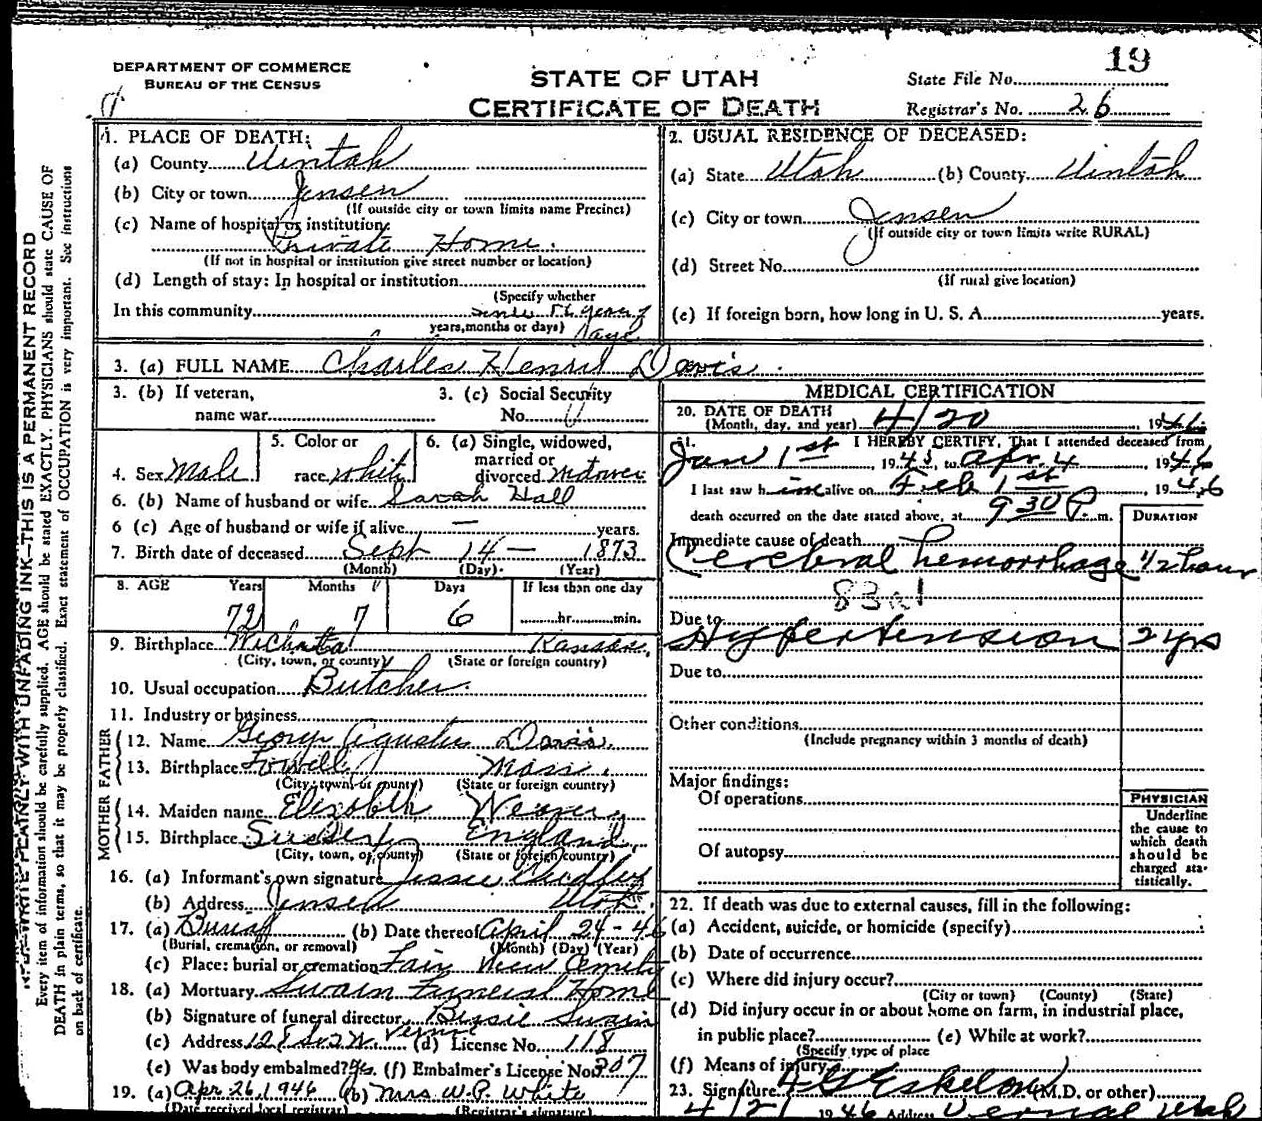 19
DEPARTMENT OF COMMERCE
BUREAU OF THE CENSUS
STATE OF UTAH
CERTIFICATE OF DEATH
State File No.
Registrar's No. 26
N.B.—WRITE PLAINLY WITH UNFADING INK—THIS IS A PERMANENT RECORD
Every item of information should be carefully supplied. AGE should be stated EXACTLY. PHYSICIANS should state CAUSE OF
DEATH in plain terms, so that it may be properly classified. Exact statement of OCCUPATION is very important. See instructions
on back of certificate.
1. PLACE OF DEATH:
(a) County Uintah
(b) City or town Jensen
(If outside city or town limits name Precinct)
(c) Name of hospital or institution:
Private Home.
(If not in hospital or institution give street number or location)
(d) Length of stay: In hospital or institution
(Specify whether
In this community years
years, months or days) Days
2. USUAL RESIDENCE OF DECEASED:
(a) State Utah (b) County Uintah
(c) City or town Jensen
(If outside city or town limits write RURAL)
(d) Street No.
(If rural give location)
(e) If foreign born, how long in U. S. A. years.
3. (a) FULL NAME Charles Henry Davis.
3. (b) If veteran,
name war
3. (c) Social Security
No.
4. Sex Male
5. Color or
race White
6. (a) Single, widowed,
married or
divorced
6. (b) Name of husband or wife Sarah Hall
6 (c) Age of husband or wife if alive — years.
7. Birth date of deceased Sept 14 — 1873
(Month) (Day) (Year)
8. AGE Years Months Days If less than one day
72 7 6 hr. min.
9. Birthplace Wichita Kansas,
(City, town, or county) (State or foreign country)
10. Usual occupation Butcher.
11. Industry or business
FATHER
12. Name George Agustus Davis.
13. Birthplace Lowell Mass.
(City, town, or county) (State or foreign country)
MOTHER
14. Maiden name Elizabeth
15. Birthplace England
(City, town, or county) (State or foreign country)
16. (a) Informant's own signature Jessie
(b) Address Jensen Utah.
17. (a) Burial (b) Date thereof April 24-46
(Burial, cremation, or removal) (Month) (Day) (Year)
(c) Place: burial or cremation Fair View
18. (a) Mortuary Swain Funeral Home
(b) Signature of funeral director Bessie Swain
(c) Address Vernal (d) License No. 118
(e) Was body embalmed? Yes. (f) Embalmer's License No. 307
19. (a) Apr 26, 1946 (b) Mrs W.P. White
(Date received local registrar) (Registrar's signature)
MEDICAL CERTIFICATION
20. DATE OF DEATH
(Month, day, and year) 4/20 1946
21. I HEREBY CERTIFY, That I attended deceased from
Jan 1st, 1945, to Apr. 4, 1946
I last saw him alive on Feb 1st, 1946
death occurred on the date stated above, at 9 30 P. m.
DURATION
Immediate cause of death
Cerebral hemorrhage 1/2 hour
Due to
Hypertension 2 yrs
Due to
Other conditions
(Include pregnancy within 3 months of death)
Major findings:
Of operations
Of autopsy
PHYSICIAN
Underline
the cause to
which death
should be
charged sta-
tistically.
22. If death was due to external causes, fill in the following:
(a) Accident, suicide, or homicide (specify)
(b) Date of occurrence
(c) Where did injury occur?
(City or town) (County) (State)
(d) Did injury occur in or about home on farm, in industrial place,
in public place? (e) While at work?
(Specify type of place
(f) Means of injury
23. Signature (M.D. or other)
4/21 1946 Address Vernal Utah